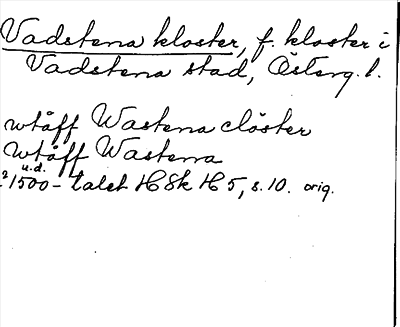 Vadstena kloster, f. kloster i
Vadstena stad, Österg. l.
wtåff Wastena clöster
wtåff Wastena
u.d.
?1500-talet HSk H5, s. 10. orig.